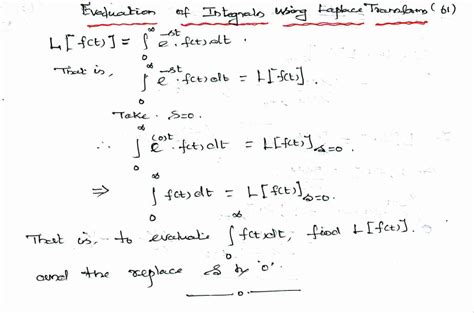 Evaluation of Integrals using Laplace Transforms (61)
L[f(t)] = ∫₀^∞ e^{-st} f(t) dt.
That is, ∫₀^∞ e^{-st} f(t) dt = L[f(t)].
Take S=0.
∴ ∫₀^∞ e^{(0)t} f(t) dt = L[f(t)]_{s=0}
⇒ ∫₀^∞ f(t) dt = L[f(t)]_{s=0}
That is, to evaluate ∫₀^∞ f(t) dt, find L[f(t)].
and the replace S by '0'.
o